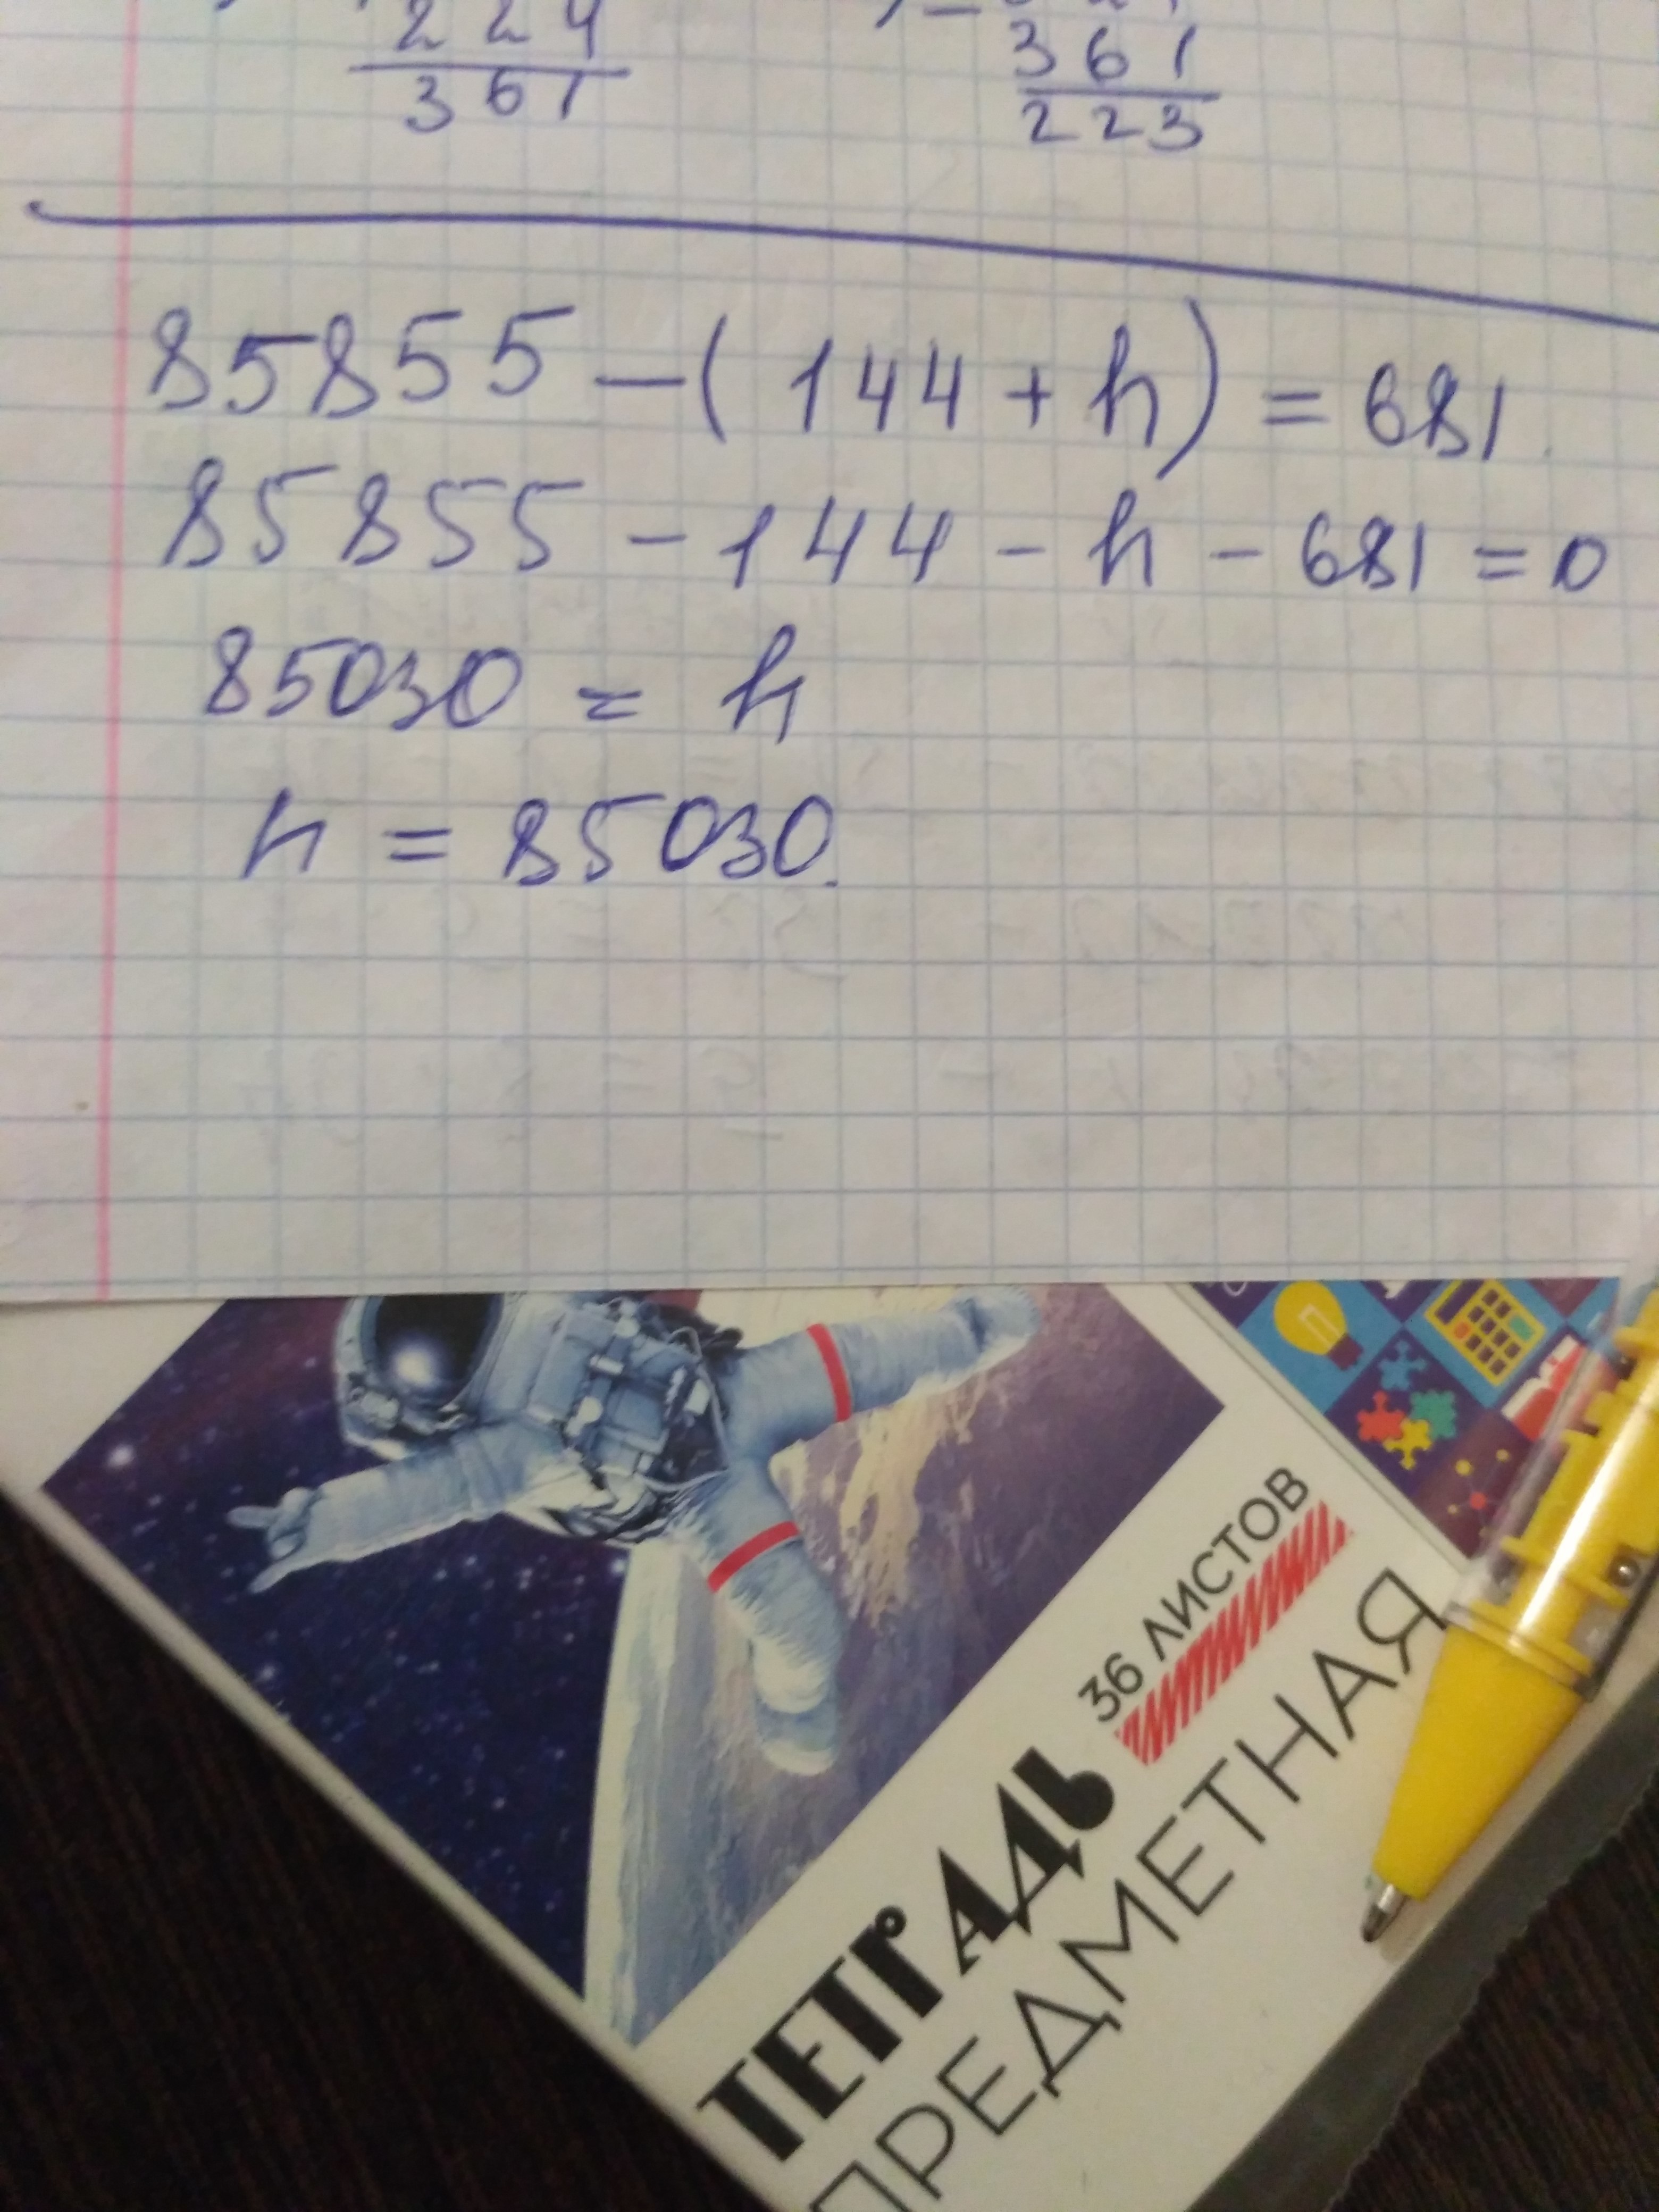 2 2 4
3 6 1
3 6 1
2 2 3
85855 - ( 144 + h ) = 681
85855 - 144 - h - 681 = 0
85030 = h
h = 85030.
36 ЛИСТОВ
ТЕТРАДЬ
ПРЕДМЕТНАЯ